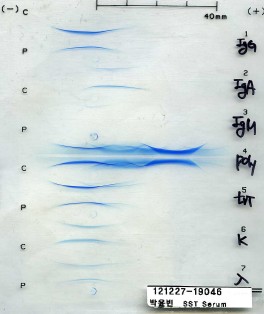 (-) C
40mm
(+)
P
1
IgG
C
2
IgA
P
3
IgM
C
4
poly
P
5
C
6
K
P
7
λ
121227-19046
박율빈 SST Serum